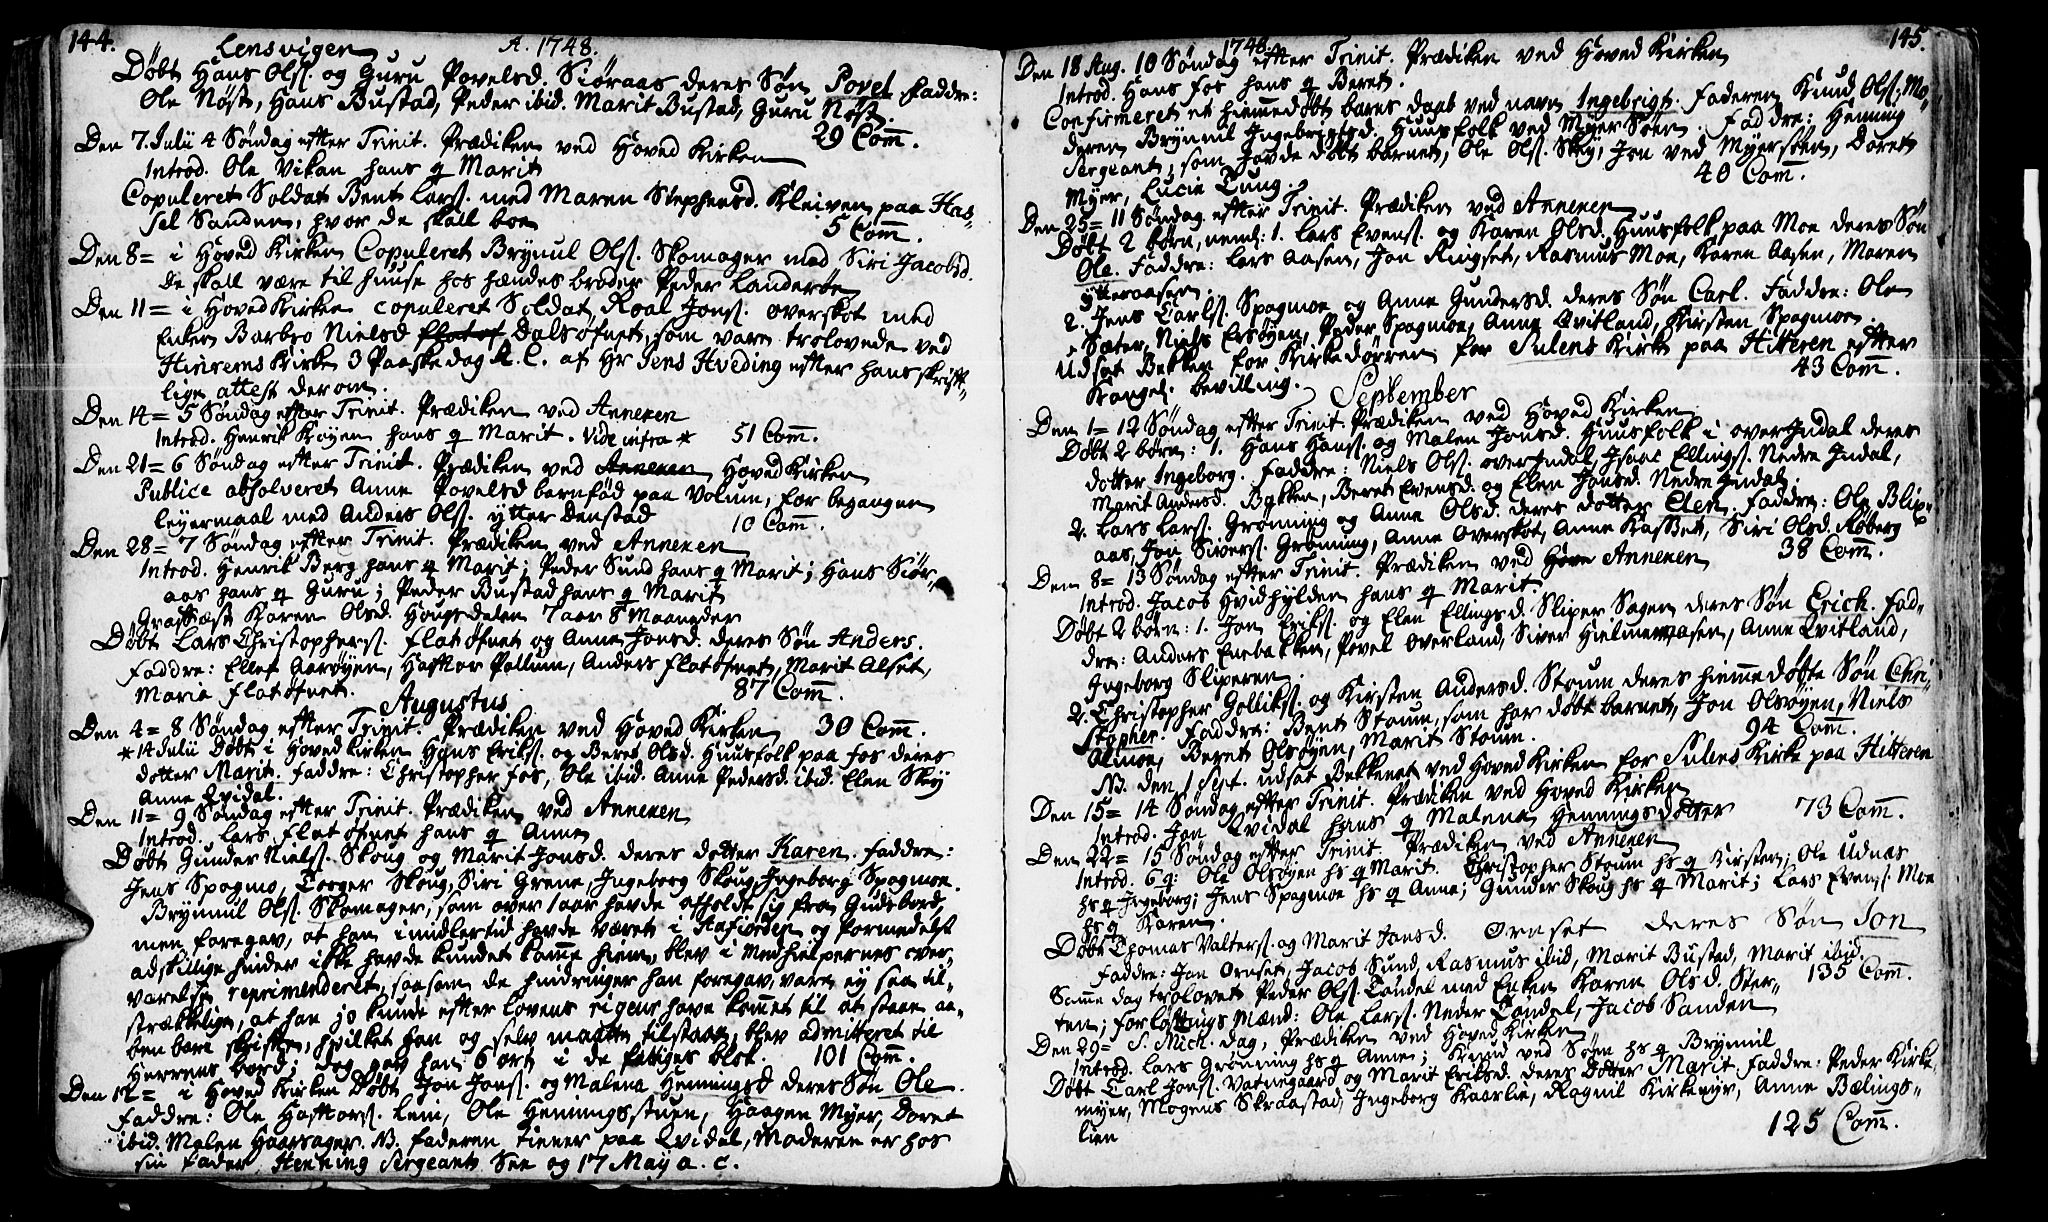 144.
Lensvigen A. 1748.
Døbt Hans Ols. og Guru Povelsd. Siøraas deres Søn Povel Faddre:
Ole Nøst, Hans Bustad, Peder ibid. Marit Bustad, Guru Nøst.
29 Com̄.
Den 7. Julii 4 Søndag efter Trinit. Prædiken ved Hoved Kirken
Introd. Ole Vikan hans q Marit
Copuleret Soldat Bent Lars. med Maren Stephensd. Kleiven paa Has-
sel Sanden, hvor de skall boe 5 Com̄.
Den 8= i Hoved Kirken Copuleret Brynnil Ols. Skomager med Siri Jacobsd.
De skall være til huuse hos hændes broder Peder Landerøe
Den 11= i Hoved Kirken copuleret Soldat, Roal Jons. overskot med
Enken Barbro Nielsd Dalsøfnet, som vare trolovede ved
Hinrems Kirke 3 Paaske dag A. C. af Hr Jens Hveding efter hans skrift-
lige attest derom.
Den 14= 5 Søndag efter Trinit. Prædiken ved Annexen
Introd. Henrik Røyen hans q Marit. Vide infra * 51 Com̄.
Den 21= 6 Søndag efter Trinit. Prædiken ved Annexen Hoved Kirken
Publice absolveret Anne Povelsd barnfød paa Volum, for begangen
leyermaal med Anders Ols. ytter Denstad 10 Com̄.
Den 28= 7 Søndag efter Trinit. Prædiken ved Annexen
Introd. Henrik Berg hans q Marit; Peder Sund hans q Marit; Hans Siør-
aas hans q Guru; Peder Bustad hans q Marit
Grafffæst Karen Olsd. Hougsdalen 7 aar 8 Maaneder
Døbt Lars Christophers. Flatøfnet og Anne Jonsd. deres Søn Anders.
Faddre: Ellef Aarøyen, Haftor Pallum, Anders Flatøfnet, Marit Alset,
Maria Flatøfnet. 87 Com̄.
Augustus
Den 4= 8 Søndag efter Trinit. Prædiken ved Hoved Kirken 30 Com̄.
* 14 Julii Døbt i Hoved Kirken Hans Eriks. og Beret Olsd. Huusfolk paa Fos deres
dotter Marit. Faddre: Christopher Fos, Ole ibid. Anne Pedersd. ibid. Elen Skey
Anne Qvidal.
Den 11= 9 Søndag efter Trinit. Prædiken ved Annexen
Introd. Lars Flatøfnet hans q Anne
Døbt Gunder Niels. Skoug og Marit Jonsd. deres dotter Karen. Faddre:
Jens Spagmo, Torger Skoug, Siri Grene, Ingeborg Skoug, Ingeborg Spagmoe.
Brynnil Ols. Skomager, som over 1 aar havde afholdt sig fra Guds bord,
men foregav, at han imidlertid havde været i Stafiorden og formedelst
adskillige hinder ikke havde kundet komme hiem, blev i Medhielpernes over-
værelse reprimenderet, saasom de hindringer han foregav, vare ey saa til-
strækkelige, at han jo kunde efter Lovens rigeur have kommet til at staae aa-
benbare skrifte, hvilket han og selv maatte tilstaae, blev admitteret til
Herrens bord; dog gav han 6 ort i de fattiges blok. 101 Com̄.
Den 12= i Hoved Kirken Døbt Jon Jons. og Malena Henningsd deres Søn Ole.
Faddre: Ole Haftors. Lein, Ole Hemingsstuen, Haagen Myer, Doret
ibid. Malen Haarsager. NB. Faderen tiener paa Qvidal, Moderen er hos
sin Fader Henning Sergeant. See og 17 May a. c.
145.
1748.
Den 18 Aug. 10 Søndag efter Trinit. Prædiken ved Hoved Kirken
Introd. Hans Fos hans q Beret.
Confirmeret et hiemmedøbt barns daab ved navn Ingebrigt. Faderen Knud Ols. Mo-
deren Brynnil Ingebrigtsd. Huusfolk ved Myer Søen. Faddre: Henning
Sergeant, som havde døbt barnet, Ole Ols. Skey, Jon ved Myersøen, Doret
Myer, Lucie Tung. 40 Com̄.
Den 25= 11 Søndag efter Trinit. Prædiken ved Annexen
Døbt 2 børn, neml: 1. Lars Evens. og Karen Olsd. Huusfolk paa Moe deres Søn
Ole. Faddre: Lars Aasen, Jon Ringset, Rasmus Moe, Karen Aasen, Maren
Ytteraasen.
2. Jens Carls. Spagmoe og Anne Gundersd. deres Søn Carl. Faddre: Ole
Sæter, Niels Ersøyen, Peder Spagmoe, Anne Qvitland, Kirsten Spagmoe.
Udsat Bekken for Kirkedørren for Sulens Kirke paa Hitteren efter
Kongel: bevilling. 43 Com̄.
September
Den 1= 12 Søndag efter Trinit. Prædiken ved Hoved Kirken
Døbt 2 børn: 1. Hans Hans. og Malen Jonsd. Huusfolk i over Indal deres
dotter Ingeborg. Faddre: Niels Ols. over Indal, Isaac Ellings. Nedre Indal,
Marit Andersd. Bakken, Beret Evensd. og Elen Jonsd. Nedre Indal.
2. Lars Lars. Grønning og Anne Olsd. deres dotter Elen. Faddre: Ole Blip-
aas, Jon Sivers. Grønning, Anne Overskot, Anne Kasbet, Siri Olsd. Røberg
38 Com̄.
Den 8= 13 Søndag efter Trinit. Prædiken ved Annexen
Introd. Jacob Hvidhylden hans q Marit.
Døbt 2 børn: 1. Jon Eriks. og Elen Ellingsd. Sliper Sagen deres Søn Erich. Fad-
dre: Anders Enebakken, Povel Overland, Siver Hielmenaasen, Anne Qvitland,
Ingeborg Sliperen.
2. Christopher Golliks. og Kirsten Andersd. Stoum deres hiemmedøbte Søn Chri-
stopher. Faddre: Bent Stoum, som har døbt barnet, Jon Olsøyen, Niels
Almoe, Beret Olsøyen, Marit Stoum. 94 Com̄.
NB. den 1 Sept. udsat Bekkenet ved Hoved Kirken for Sulens Kirke paa Hitteren
Den 15= 14 Søndag efter Trinit. Prædiken ved Hoved Kirken
Introd. Jon Qvidal hans q Malena Henningsdotter 73 Com̄.
Den 22= 15 Søndag efter Trinit. Prædiken ved Annexen
Introd. 6 q: Ole Olsøyen hs q Marit. Christopher Stoum hs q Kirsten; Ole Udnas
hs q Ingeborg; Jens Spagmoe hs q Anne; Gunder Skoug hs q Marit; Lars Evens. Moe
hs q Karen.
Døbt Thomas Valters. og Marit Jonsd. Ornset deres Søn Jon
Faddre: Jon Ornset, Jacob Sund, Rasmus ibid, Marit Bustad, Marit ibid.
135 Com̄.
Samme dag trolovet Peder Ols. Tandel med Enken Karen Olsd. Ster-
ten; forløftnings Mænd: Ole Lars. Neder Tandel, Jacob Sanden
Den 29= S. Mich. dag, Prædiken ved Hoved Kirken
Introd. Lars Grønning hs q Anne; Knud ved Søen hs q Brynnil
Døbt Carl Jons. Vatnegaard og Marit Eriksd. deres Dotter Marit. Faddre: Peder Kirke-
myer, Mogens Skraastad, Ingeborg Kaarlie, Ragnil Kirkemyr, Anne Bælings-
lien 125 Com̄.